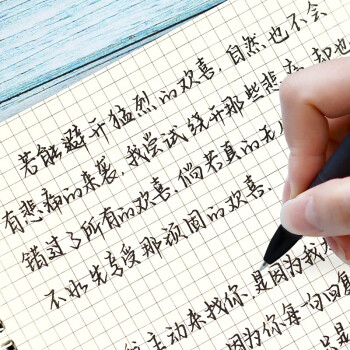 若能避开猛烈的欢喜,自然也不会
有悲痛的来袭.我尝试绕开那些悲
错过了所有的欢喜.倘若真的无
不如先享受那顷间的欢喜.
主动来找你,是因为我
因为你每句回复